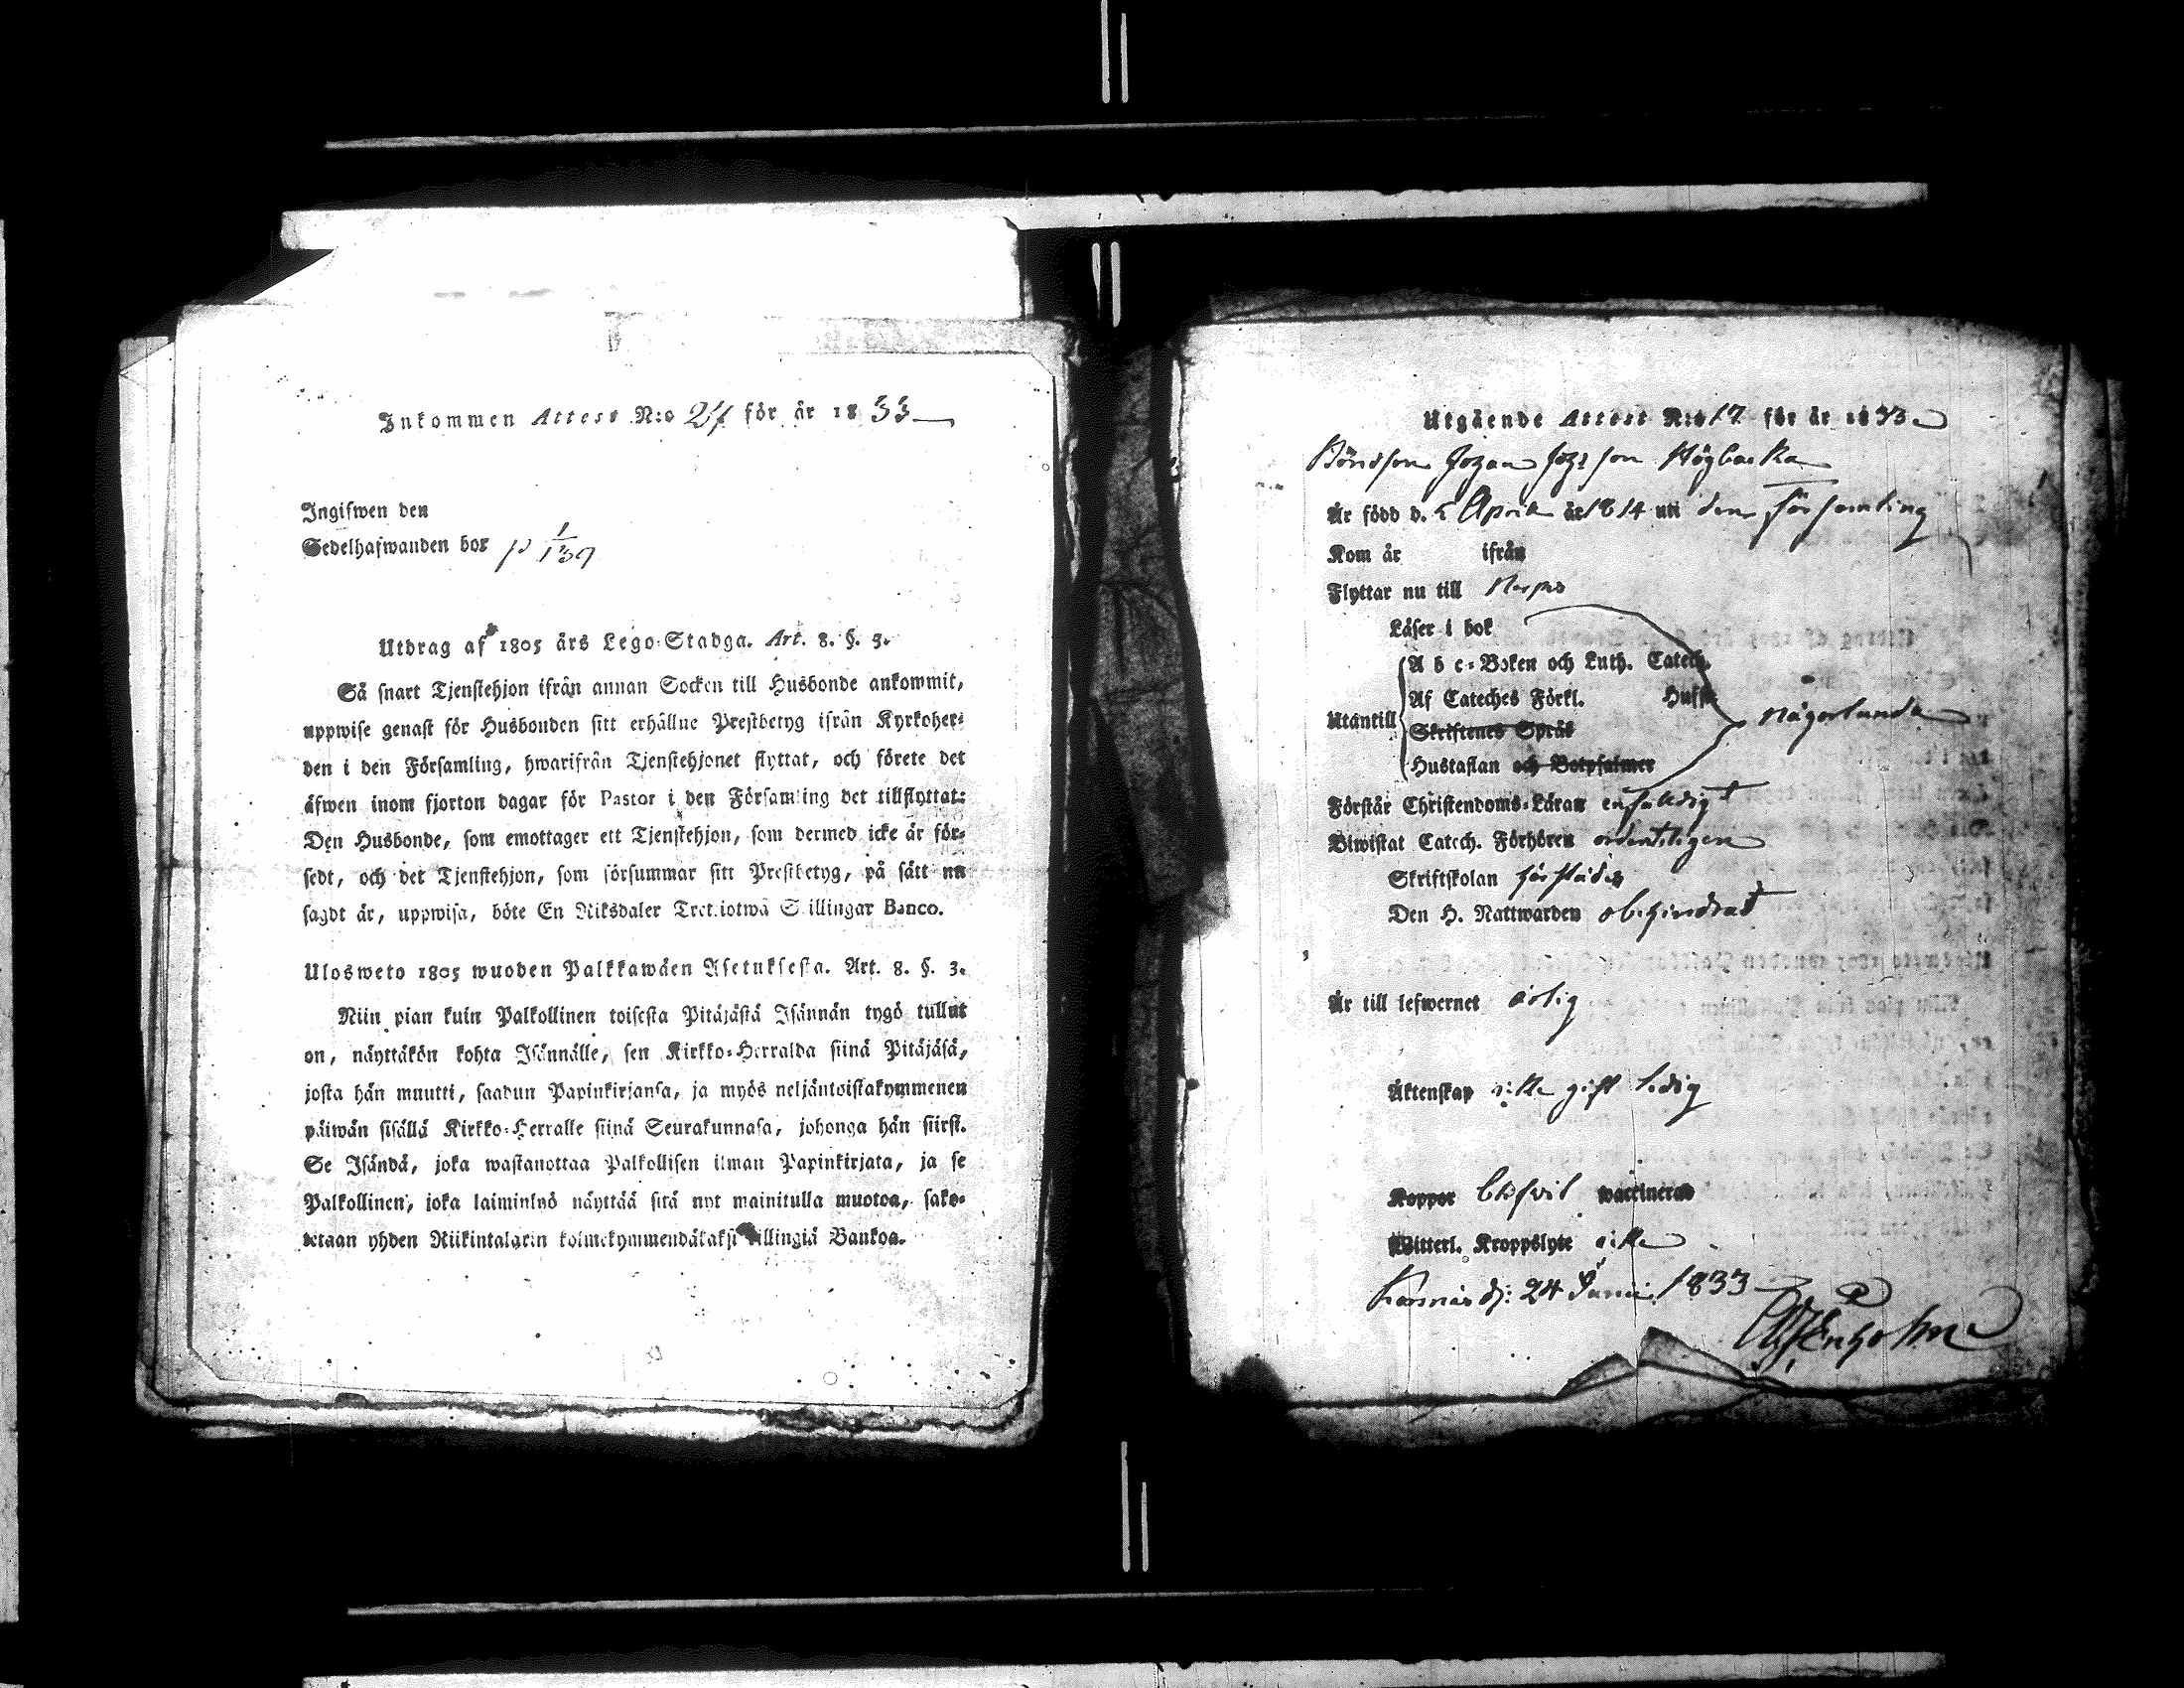 Inkommen Attest N:o 27 för år 1833
Ingifwen den
Sedelhafwanden bor p 1/139
Utdrag af 1805 års Lego-Stadga. Art. 8. §. 3.
Så snart Tjenstehjon ifrån annan Socken till Husbonde ankommit,
uppwise genast för Husbonden sitt erhållne Prestbetyg ifrån Kyrkoher-
den i den Församling, hwarifrån Tjenstehjonet flyttat, och förete det
äfwen inom fjorton dagar för Pastor i den Församling det tillflyttat:
Den Husbonde, som emottager ett Tjenstehjon, som dermed icke är för-
sedt, och det Tjenstehjon, som försummar sitt Prestbetyg, på sätt nu
sagdt är, uppwisa, böte En Riksdaler Tretiotwå Skillingar Banco.
Ulosweto 1805 wuoden Palkkawäen Asetuksesta. Art. 8. §. 3.
Niin pian kuin Palkollinen toisesta Pitäjästä Isännän tygö tullut
on, näyttäkön kohta Isännälle, sen Kirkko-Herralda siinä Pitäjäsä,
josta hän muutti, saadun Papinkirjansa, ja myös neljäntoistakymmenen
päiwän sisällä Kirkko-Herralle siinä Seurakunnasa, johonga hän siirst.
Se Isändä, joka wastanottaa Palkollisen ilman Papinkirjata, ja se
Palkollinen, joka laiminlyö näyttää sitä nyt mainitulla muotoa, sako-
tetaan yhden Riikintalarin kolmekymmendäkaksi killingiä Bankoa.
Utgående Attest N:o 17 för år 1833
Bondson Johan Johsson Högbacka
Är född d. 5 April år 1814 uti denna församling
Kom år ifrån
Flyttar nu till Korpo
Läser i bok
A b c-Boken och Luth. Catech.
Af Cateches Förkl. Husfl.
Utantill Skriftenes Språk någorlunda
Hustaflan och Botpsalmer
Förstår Christendoms-Läran enfaldigt
Biwistat Catech. Förhören ordentligen
Skriftskolan
Den H. Nattwarden obehindrad
Är till lefwernet ärlig
Äktenskap icke gift ledig
Koppor wäccinerad
Witterl. Kroppslyte icke
d: 24 Junii 1833